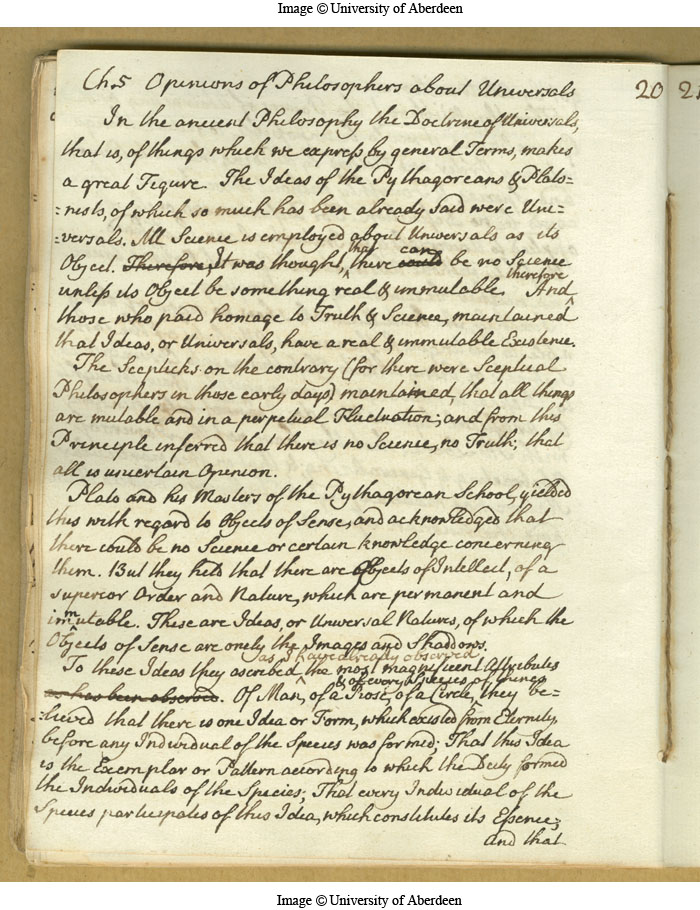 Image © University of Aberdeen
Ch.5 Opinions of Philosophers about Universals
20 2
In the ancient Philosophy the Doctrine of Universals,
that is, of things which we express by general Terms, makes
a great Figure. The Ideas of the Pythagoreans & Plato=
=nists, of which so much has been already said were Uni=
=versals. All Science is employed about Universals as its
that can
Object. Therefore, It was thought, there could be no Science
therefore
unless its Object be something real & immutable. And
those who paid homage to Truth & Science, maintained
that Ideas, or Universals, have a real & immutable Existence.
The Scepticks on the contrary (for there were Sceptical
Philosophers in those early days) maintained, that all things
are mutable and in a perpetual Fluctuation; and from this
Principle inferred that there is no Science, no Truth; that
all is uncertain Opinion.
Plato and his Masters of the Pythagorean School, yielded
this with regard to Objects of Sense, and acknowledged that
there could be no Science or certain knowledge concerning
them. But they held that there are Objects of Intellect, of a
superior Order and Nature, which are permanent and
m
imutable. These are Ideas, or Universal Natures, of which the
Objects of Sense are onely the Images and Shaddows.
as I have already observed
To these Ideas they ascribed the most magnificent Attributes
& of every Species of things
as has been observed. Of Man, of a Rose, of a Circle, they be=
=lieved that there is one Idea or Form, which existed from Eternity,
before any Individual of the Species was formed; That this Idea
is the Exemplar or Pattern according to which the Deity formed
the Individuals of the Species; That every Individual of the
Species participates of this Idea, which constitutes its Essence;
and that
Image © University of Aberdeen